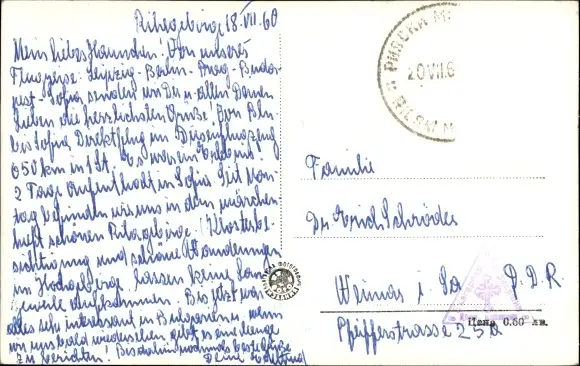 Rilagebirge 18.VII.60
Mein liebes Hannchen! Von unserer
Flugreise: Leipzig-Berlin-Prag-Buda-
pest-Sofia senden wir Dir u. allen Deinen
Lieben die herzlichsten Grüße! Von
Sofia Direktflug im Düsenflugzeug
650 km in 1 St. war ein Erlebnis!
2 Tage Aufenthalt in Sofia. Seit Mon-
tag befinden wir uns in dem märchen-
haft schönen Rilagebirge. (Klosterbe-
sichtigung und schöne Wanderungen
im Hochgebirge lassen keine Lange-
weile aufkommen. Bis jetzt war
alles sehr interessant in Bulgarien u. wenn
wir uns bald wiedersehen gibt es eine Menge
zu berichten! Bis dahin nochmals beste Grüße
Deine
РИЛСКА М
20 VII.6
Familie
Dr. Erich Schröder
Weimar i. Da D.D.R.
Pfeifferstrasse 25a
Цена 0.60 лв.